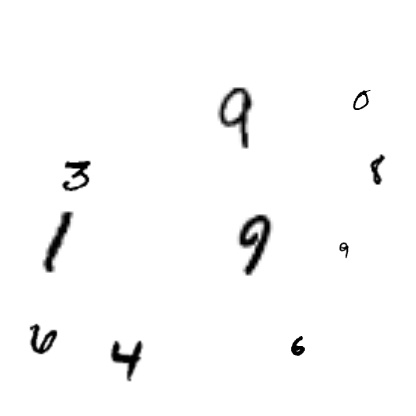 9 0
3 8
1 9 9
6 4 6